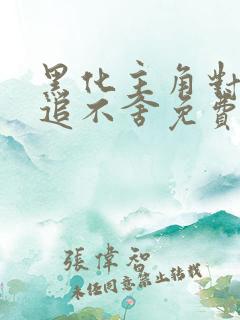 黑化主角對
追不舍免費
張偉智
未經同意禁止轉載